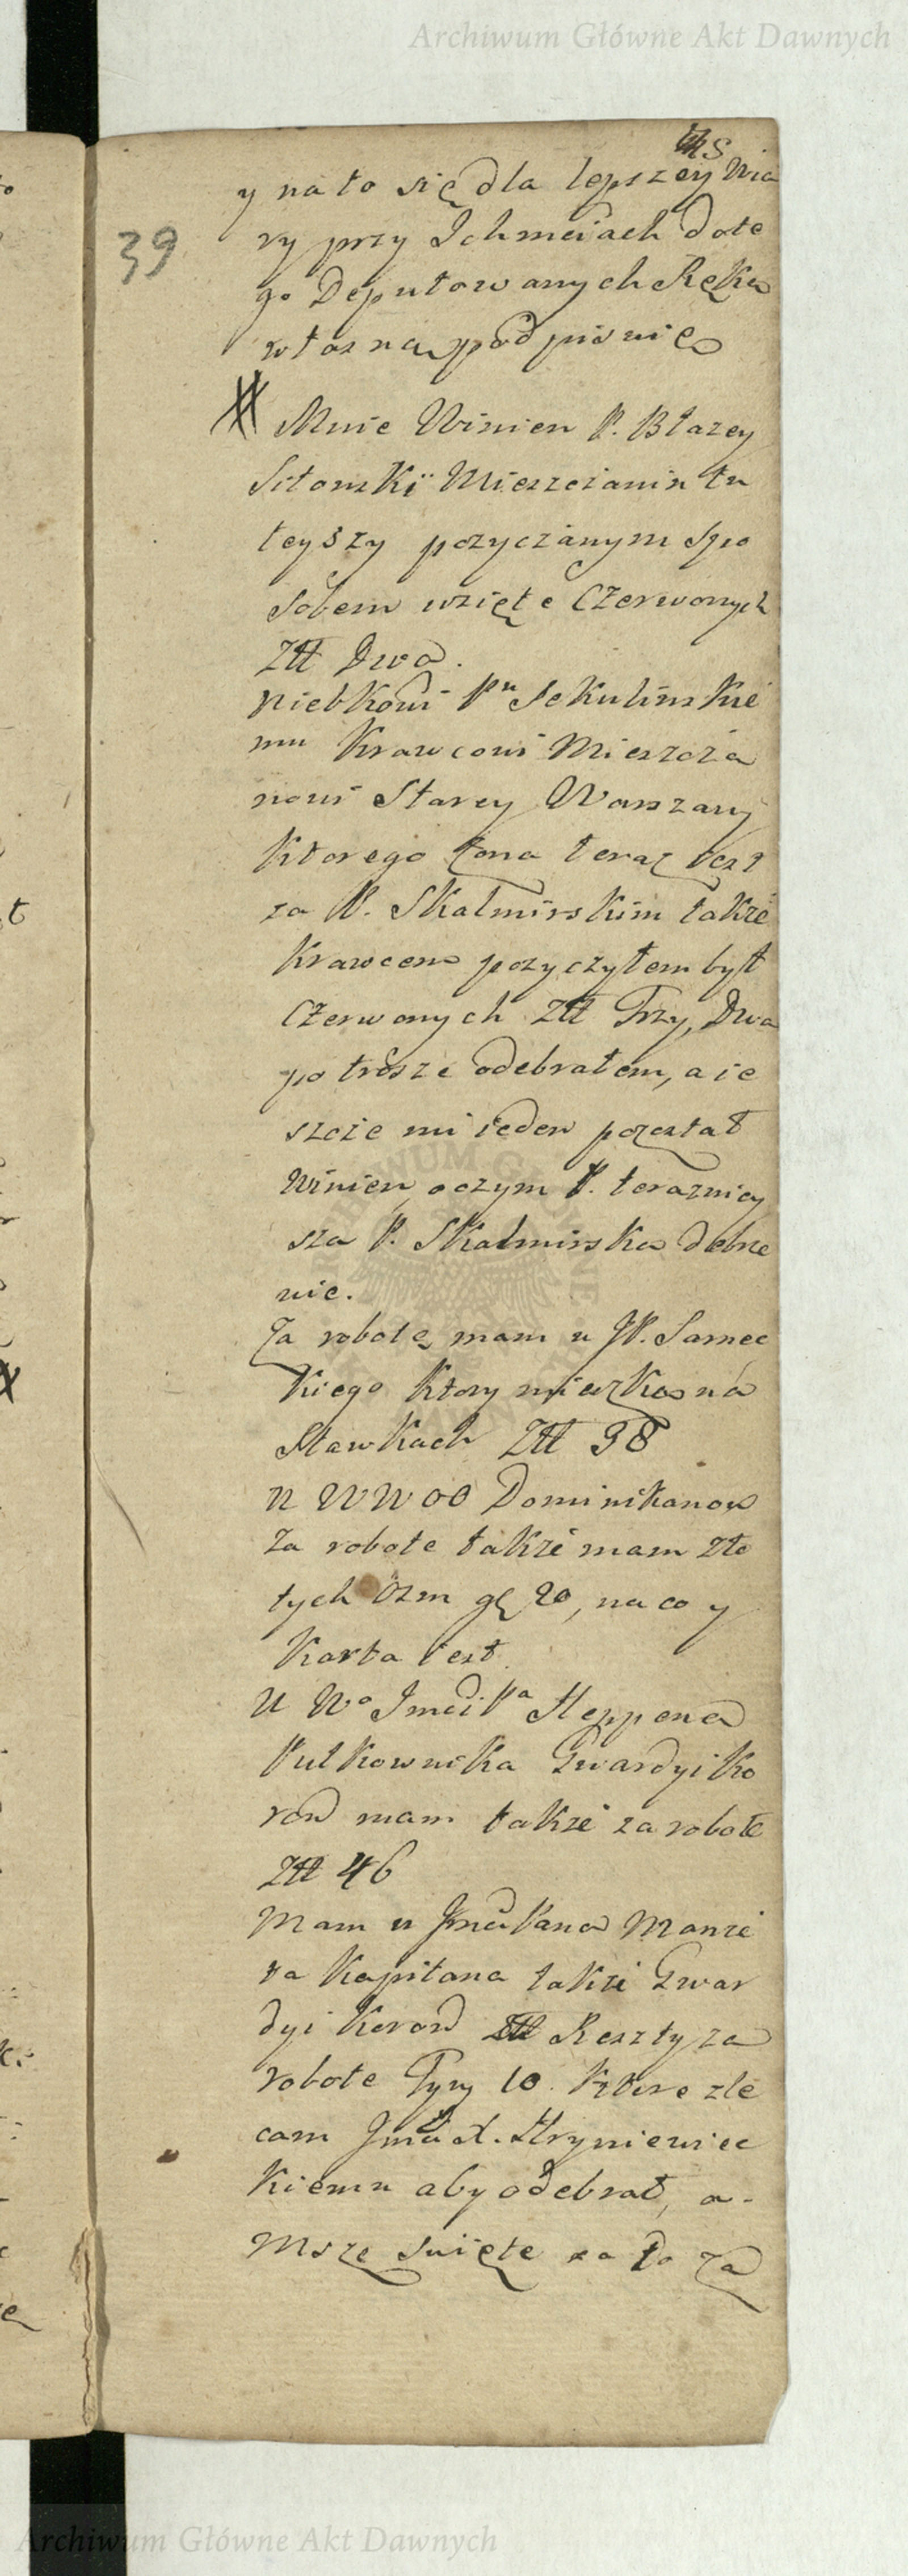 Archiwum Główne Akt Dawnych
39
y na to się dla lepszey Wia
ry przy Ichmciach do te
go Deputowanych Ręką
własną podpisuię
Mnie Winien P. Błazey
Mieszczanin tu
teyszy pozyczanym spo
sobem wzięte Czerwonych
Złł Dwa.
Niebkowi Pu Sekulinskie
mu Krawcowi Mieszcza
nowi Starey Warszawy
Ktorego zona teraz iest
za P. Skalmirskim także
Krawcem pozyczyłem był
Czerwonych Złł Trzy, Dwa
po trosze odebrałem, a ie
szcze mi ieden pozostał
Winien, o czym P. terazniey
sza P. Skalmirska dobrze
wie.
Za robotę mam u JP. Sarnec
kiego Ktory mieszka na
Stawkach Złł 38
U WW OO Dominikanow
za robote także mam zło
tych Osm gr 20, na co y
Karta iest.
U Wo Jmci Pa Heppena
Pułkownika Gwardyi Ko
ron mam także za robotę
Złł 46
Mam u Jmci Pana
ra Kapitana także Gwar
dyi Koron Reszty za
robote Tynf 10. Ktore zle
cam Jmci X. Hryniewiec
kiemu aby odebrał, a
Msze swięte za to za
Archiwum Główne Akt Dawnych